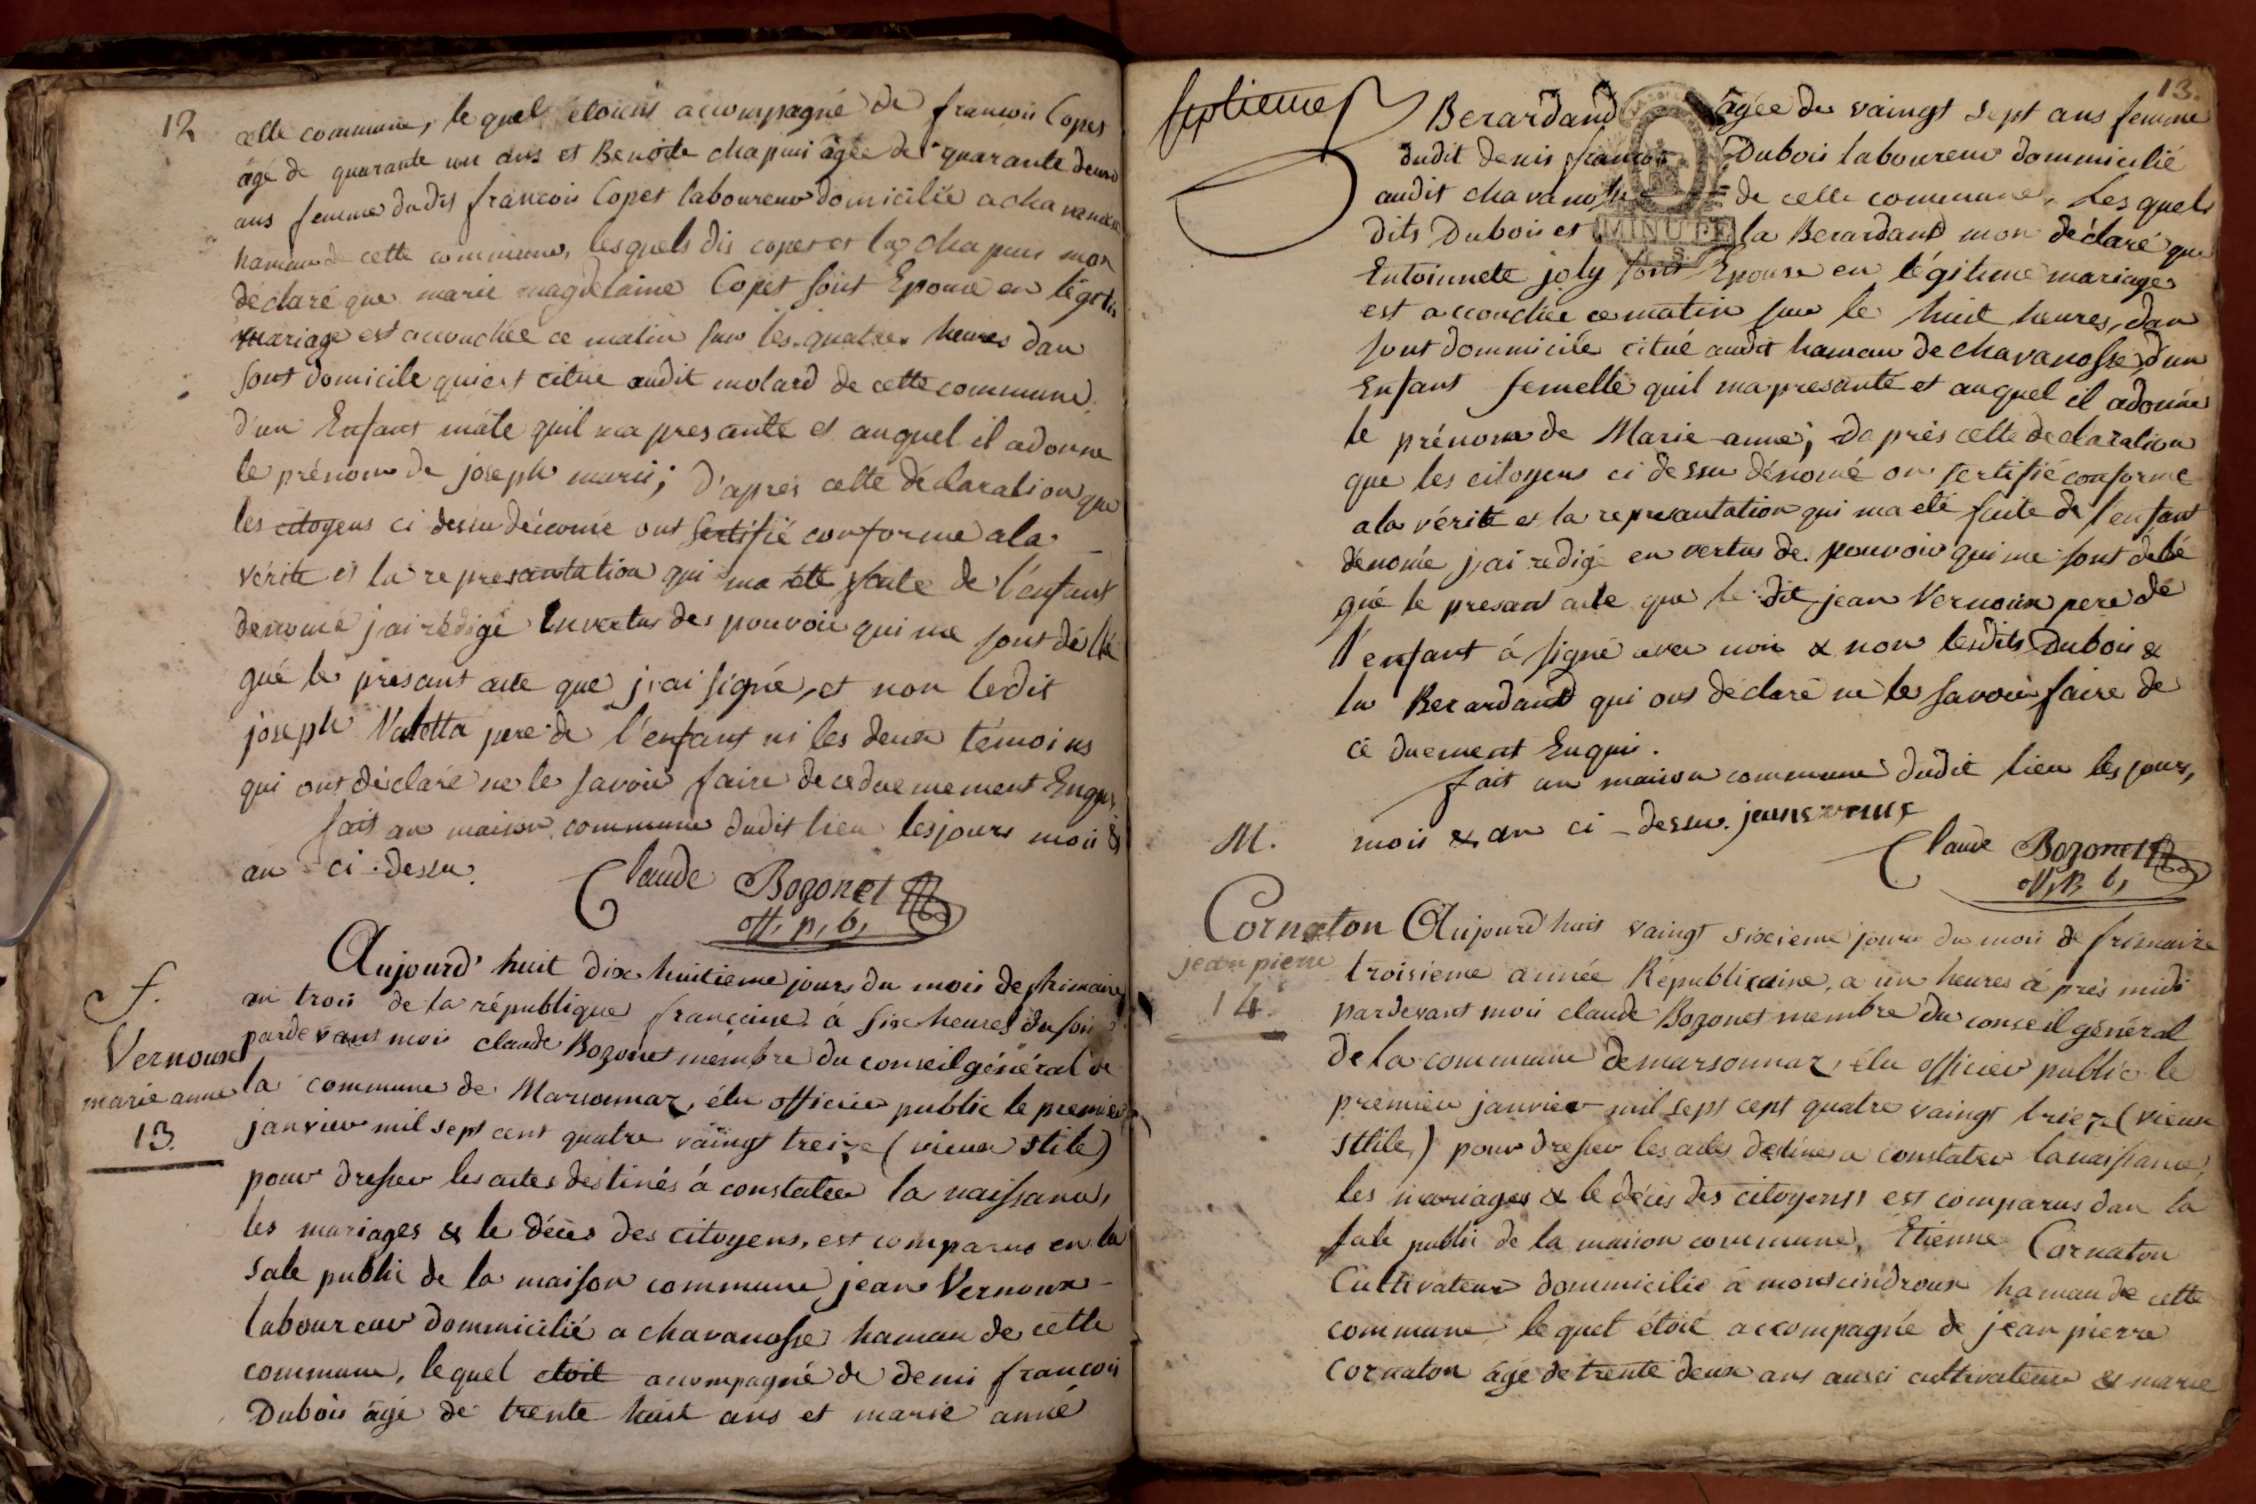 12
celle commune, le quel étoient accompagné de francois Copet
âgé de quarante un ans et Benoite chapuis âgée de quarante deux
ans femme dudit francois Copet laboureur domicilié a chavanosse
hamau de cette commune, lesquels dis copet et la chapuis mon
déclaré que marie magdelaine Copet sont Epouse en légiti
mariage est accouchée ce matin sur les quatre heures dan
sont domicile qui est citué audit molard de cette commune
d'un Enfant mâle quil ma presanté et auquel il adonne
le prénom de joseph marie; D'après cette déclaration que
les citoyens ci dessu dénomé ont sertifié conforme ala
vérité et la represantation qui ma été faite de l'enfant
denomé j'ai rédigé En vertus des pouvoir qui me sont délé
gué le présant acte que j'ai signé, et non ledit
joseph Valetta pere de l'enfant ni les deux témoins
qui ont déclaré ne le savoir faire de ce duemement Enquis
fait an maison commune dudit lieu les jours mois &
an ci-dessu.
Claude Bozonet
off. p, b,
f.
Vernoux
marie anne
13.
Aujourd'huit dix huitieme jours du mois de phrimaire
an trois de la république française à six heures du soir
pardevant moi claude Bozonet membre du conseil général de
la commune de Marsonnaz, élu officier public le premier
janvier mil sept cent quatre vaingt treize (vieux stile)
pour dresser les actes destinés á constater la naissance,
les mariages & le décès des citoyens, est comparus en la
sale public de la maison commune jean Vernoux
laboureur dommicilié a chavanosse hamau de cette
commune, lequel étoit accompagné de denis francois
Dubois âgé de trente huit ans et marie anne
13.
septieme
Berardand âgée de vaingt sept ans femme
dudit denis francois Dubois laboureur dommicilié
audit chavanosse de cette commune, Lesquels
MINUTE
dits Dubois et la Berardand mon déclaré que
Entoinnete joly sont Epouse en légitime mariage
est accouchée ce matin sur le huit heures, dan
sont dommicile citué audit hamau de chavanosse, d'un
Enfant femelle quil ma presanté et auquel il adonné
le prénom de Marie anne; Da près cette declaration
que les citoyens ci dessu dénomé on sertifié conforme
ala vérité et la represantation qui ma été faite de l'enfant
dénomé j,ai redigé en vertus de pouvoir qui me sont délé
gué le presant acte que le dit jean Vernoux pere de
l'enfant á signé avec moi & non lesdits Dubois &
la Berardand qui ont déclaré ne le savoir faire de
cé duement Enquis.
fait an maison commune dudit lieu les jours,
mois & an ci-dessu. jean vernux
Claude Bozonet
off, P. b,
M.
Cornaton
jean pierre
14.
Aujourd'huit vaingt sixieme jour du mois de frimaire
troisieme année Républicaine, a un heures á près midi
pardevant moi claude Bozonet membre du conseil général
de la commune de marsonnaz, élu officier public le
premier janvier mil sept cept quatre vaingt trieze (vieux
sttile,) pour dresser les actes destinés a constater la naissance,
les mariages & le décès des citoyens, est comparus dan la
sale public de la maison commune, Etienne Cornaton
Cultivateur dommicilié á monscindroux hamau de cette
commune lequel étoit accompagné de jean pierre
Cornaton âgé de trente deux ans aussi cultivateur & marie